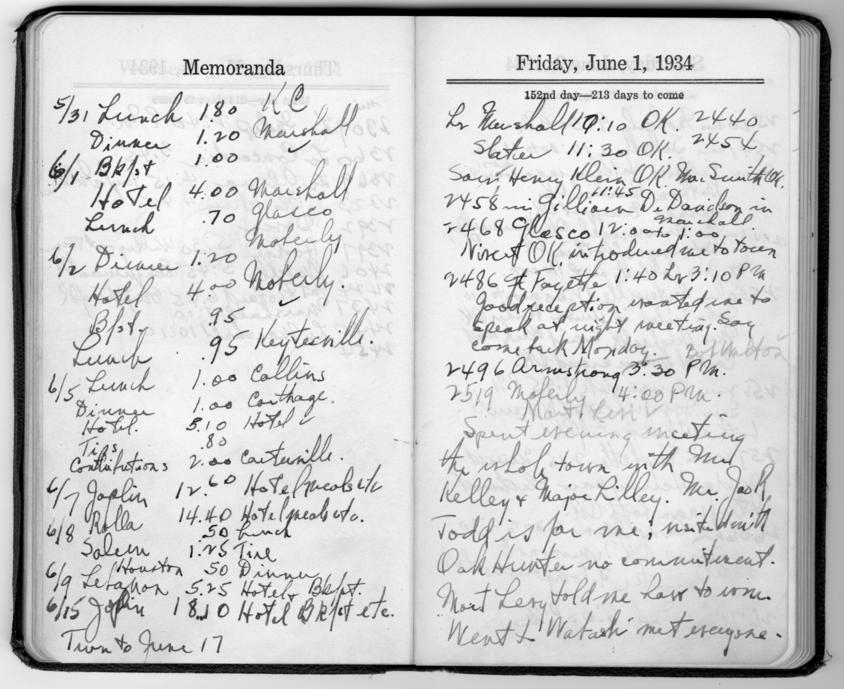 Memoranda
5/31 Lunch 1.80 K C
Dinner 1.20 Marshall
6/1 Bkfst 1.00
Hotel 4.00 Marshall
Lunch .70 Glasco
Moberly
6/2 Dinner 1.20
Hotel 4.00 Moberly.
Bfst. .95
Lunch .95 Keytesville.
6/5 Lunch 1.00 Collins
Dinner 1.00 Carthage.
Hotel. 5.10 Hotel
Tips .80
Contributions 2.00 Carterville.
6/7 Joplin 12.60 Hotel meals etc
6/8 Rolla 14.40 Hotel meals etc.
.50 Lunch
Salem 1.25 Tire
Houston 50 Dinner
6/9 Lebanon 5.25 Hotel & Bkfst.
6/15 Joplin 18.10 Hotel Bkfst etc.
Turn to June 17
Friday, June 1, 1934
152nd day—213 days to come
Lv Marshall 10:10 OK. 2440
Slater 11:30 OK. 2454
Saw Henry Klein OK. Mac Smith OK.
2458 in Gilliam 11:45 D. Davidson in
Marshall
2468 Glasco 12:00 to 1:00
OK introduced me to town
2486 At Fayette 1:40 Lv 3:10 PM
Good reception wanted me to
speak at night meeting. Say
come back Monday. Bob Walton
2496 Armstrong 3:30 P.M.
2519 Moberly 4:00 P.M.
Mort Levy
Spent evening meeting
the whole town with Mr.
Kelley & Major Lilley. Mr. Jack
Todd is for me; visited with
Oak Hunter no commitment.
Mort Levy told me how to win.
Went to Wabash met everyone.